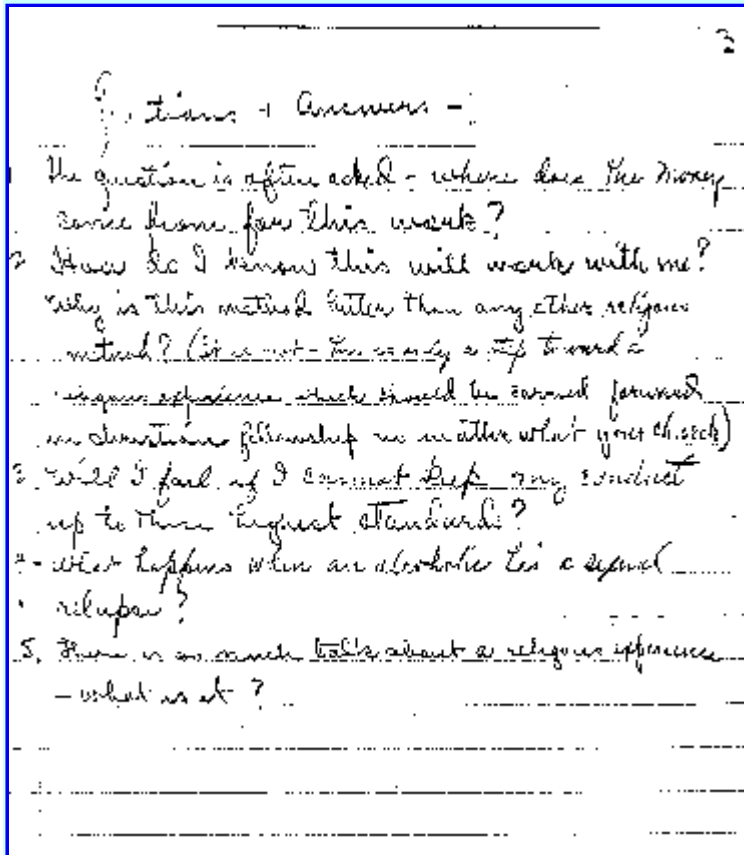 3
Questions + Answers -
1 The question is often asked - where does the money
come from for this work?
2 How do I know this will work with me?
Why is this method better than any other religious
method? (It is not - this is only a step toward a
religious experience which should be carried forward
in christian fellowship no matter what your church)
3 Will I fail if I cannot keep my conduct
up to these highest standards?
4 - What happens when an alcoholic has a sexual
relapse?
5. There is so much talk about a religious experience
- what is it?